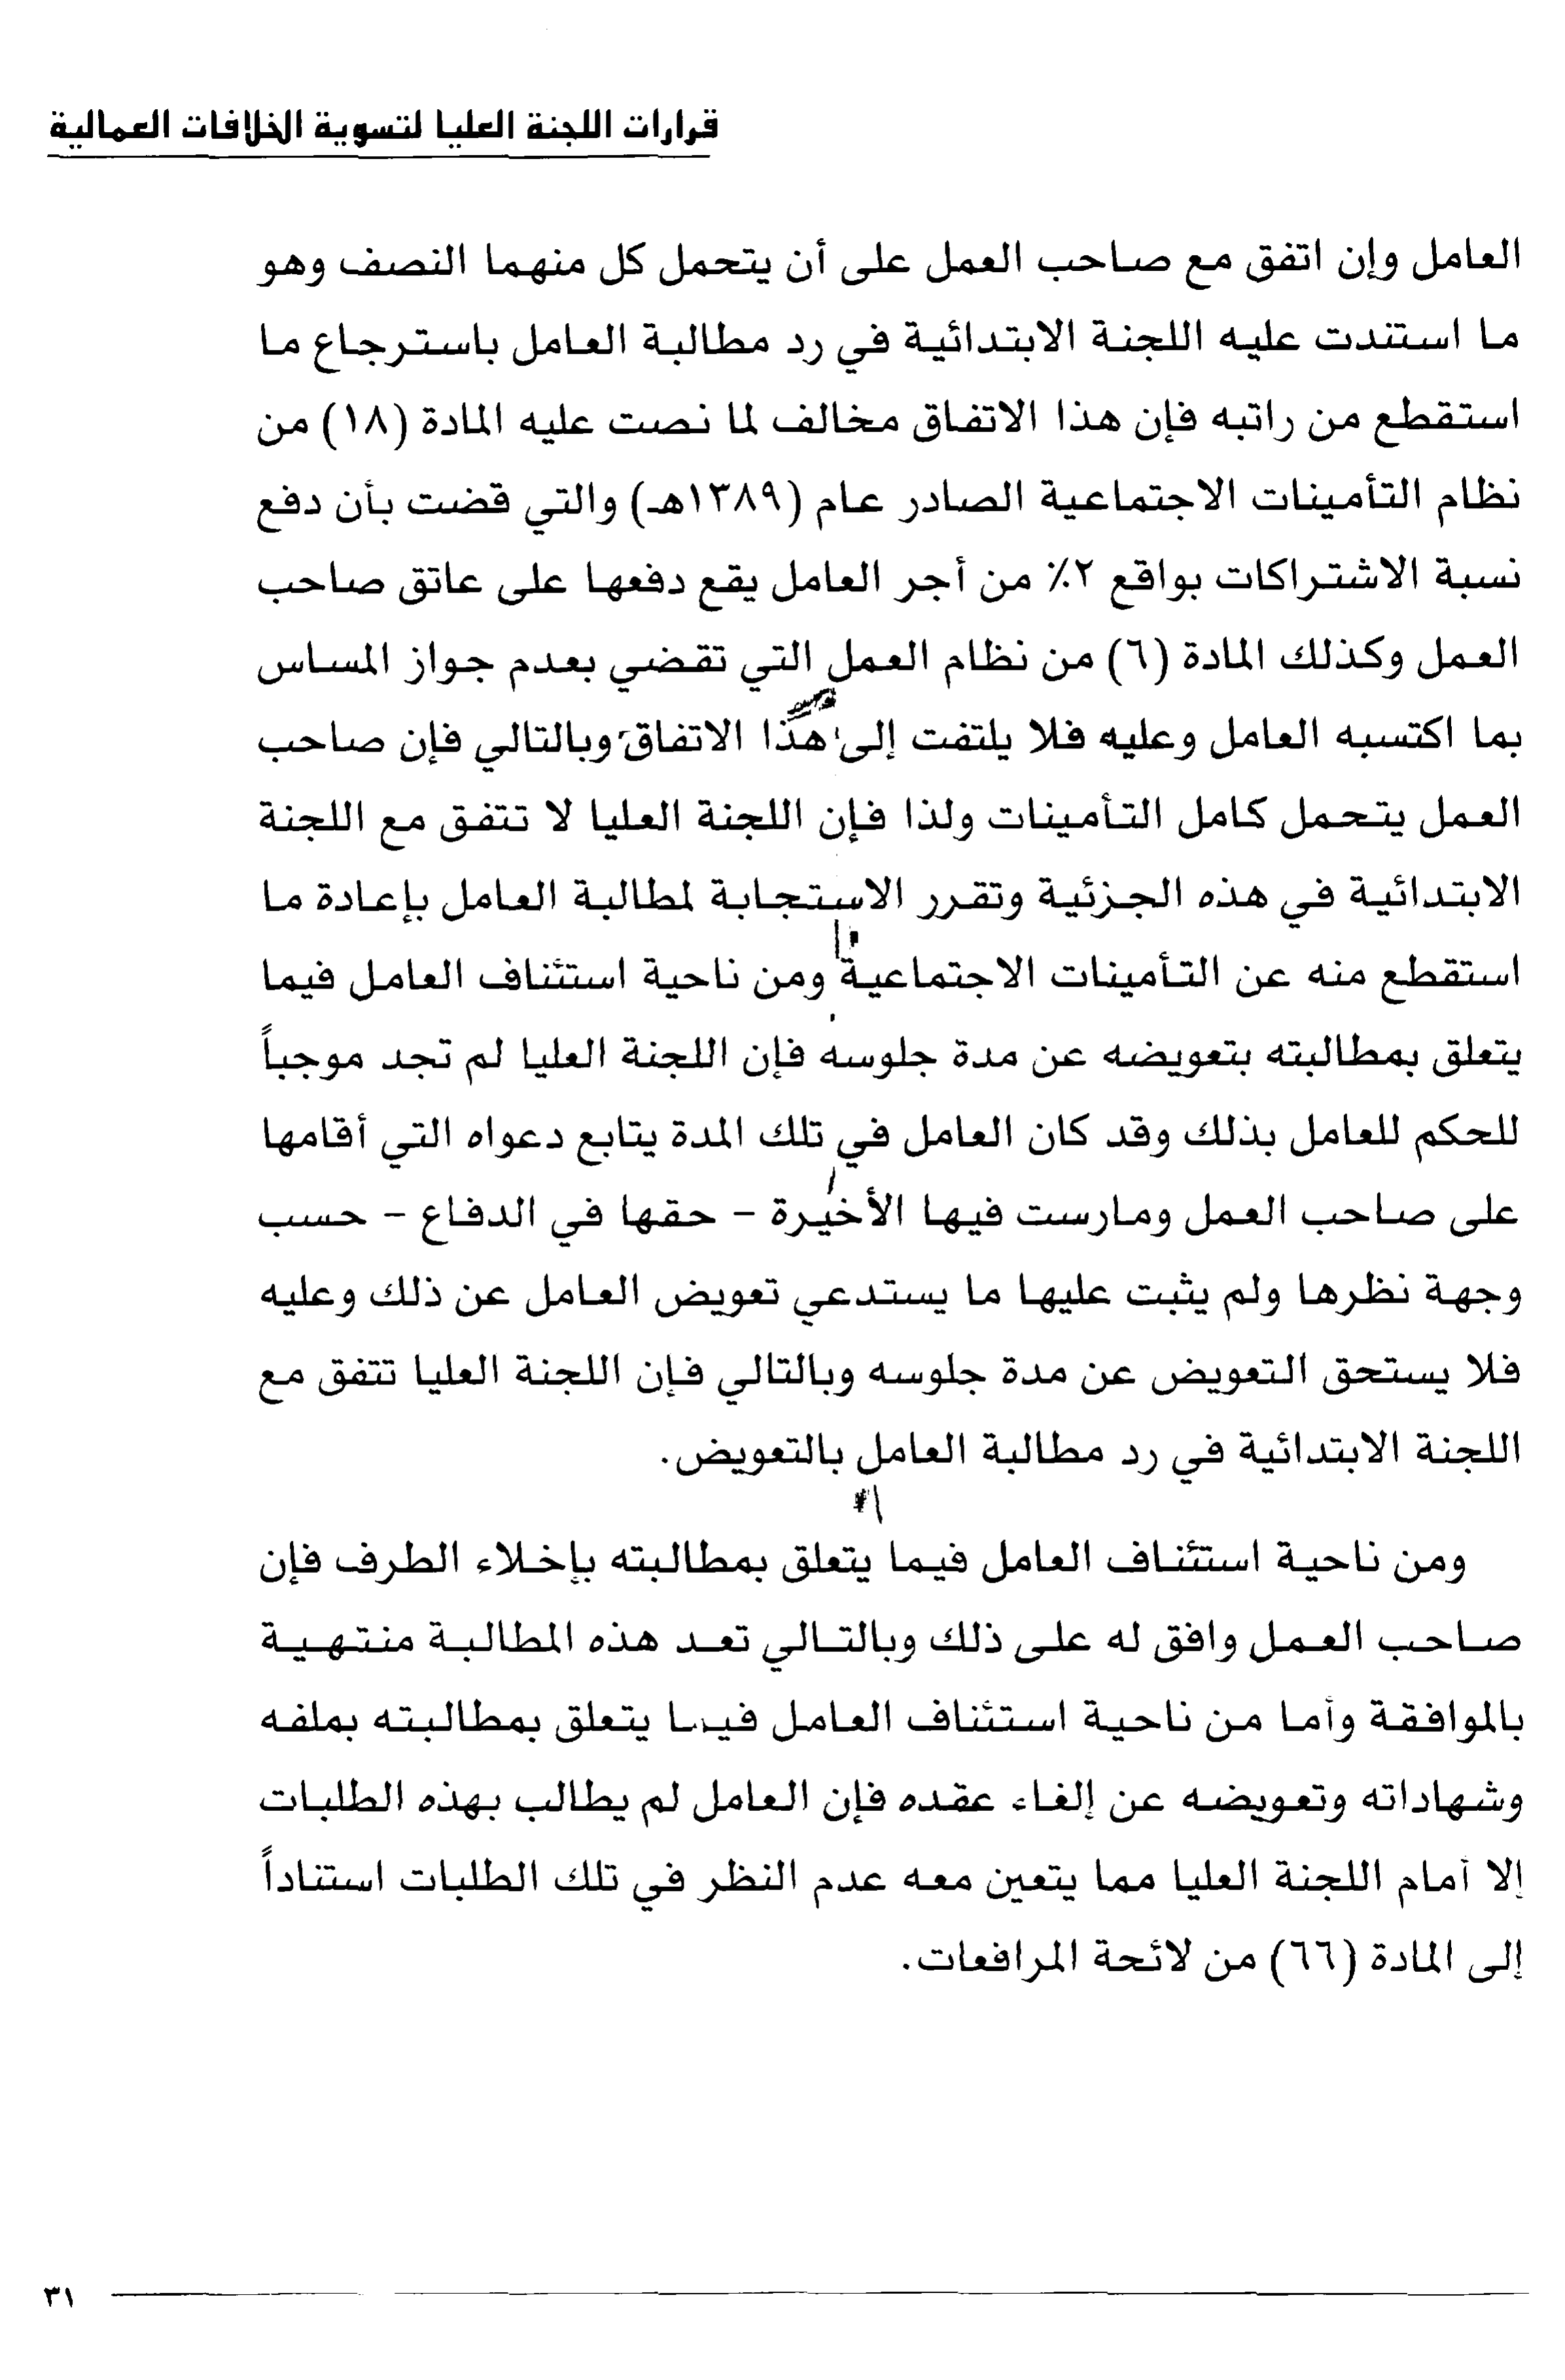 قرارات اللجنة العليا لتسوية الخلافات العمالية
العامل وإن اتفق مع صاحب العمل على أن يتحمل كل منهما النصف وهو
ما استندت عليه اللجنة الابتدائية في رد مطالبة العامل باسترجاع ما
استقطع من راتبه فإن هذا الاتفاق مخالف لما نصت عليه المادة (١٨) من
نظام التأمينات الاجتماعية الصادر عام (١٣٨٩هـ) والتي قضت بأن دفع
نسبة الاشتراكات بواقع ٢٪ من أجر العامل يقع دفعها على عاتق صاحب
العمل وكذلك المادة (٦) من نظام العمل التي تقضي بعدم جواز المساس
بما اكتسبه العامل وعليه فلا يلتفت إلى هذا الاتفاق وبالتالي فإن صاحب
العمل يتحمل كامل التأمينات ولذا فإن اللجنة العليا لا تتفق مع اللجنة
الابتدائية في هذه الجزئية وتقرر الاستجابة لمطالبة العامل بإعادة ما
استقطع منه عن التأمينات الاجتماعية ومن ناحية استئناف العامل فيما
يتعلق بمطالبته بتعويضه عن مدة جلوسه فإن اللجنة العليا لم تجد موجباً
للحكم للعامل بذلك وقد كان العامل في تلك المدة يتابع دعواه التي أقامها
على صاحب العمل ومارست فيها الأخيرة - حقها في الدفاع - حسب
وجهة نظرها ولم يثبت عليها ما يستدعي تعويض العامل عن ذلك وعليه
فلا يستحق التعويض عن مدة جلوسه وبالتالي فإن اللجنة العليا تتفق مع
اللجنة الابتدائية في رد مطالبة العامل بالتعويض.
ومن ناحية استئناف العامل فيما يتعلق بمطالبته بإخلاء الطرف فإن
صاحب العمل وافق له على ذلك وبالتالي تعد هذه المطالبة منتهية
بالموافقة وأما من ناحية استئناف العامل فيما يتعلق بمطالبته بملفه
وشهاداته وتعويضه عن إلغاء عقده فإن العامل لم يطالب بهذه الطلبات
إلا أمام اللجنة العليا مما يتعين معه عدم النظر في تلك الطلبات استناداً
إلى المادة (٦٦) من لائحة المرافعات.
٣١